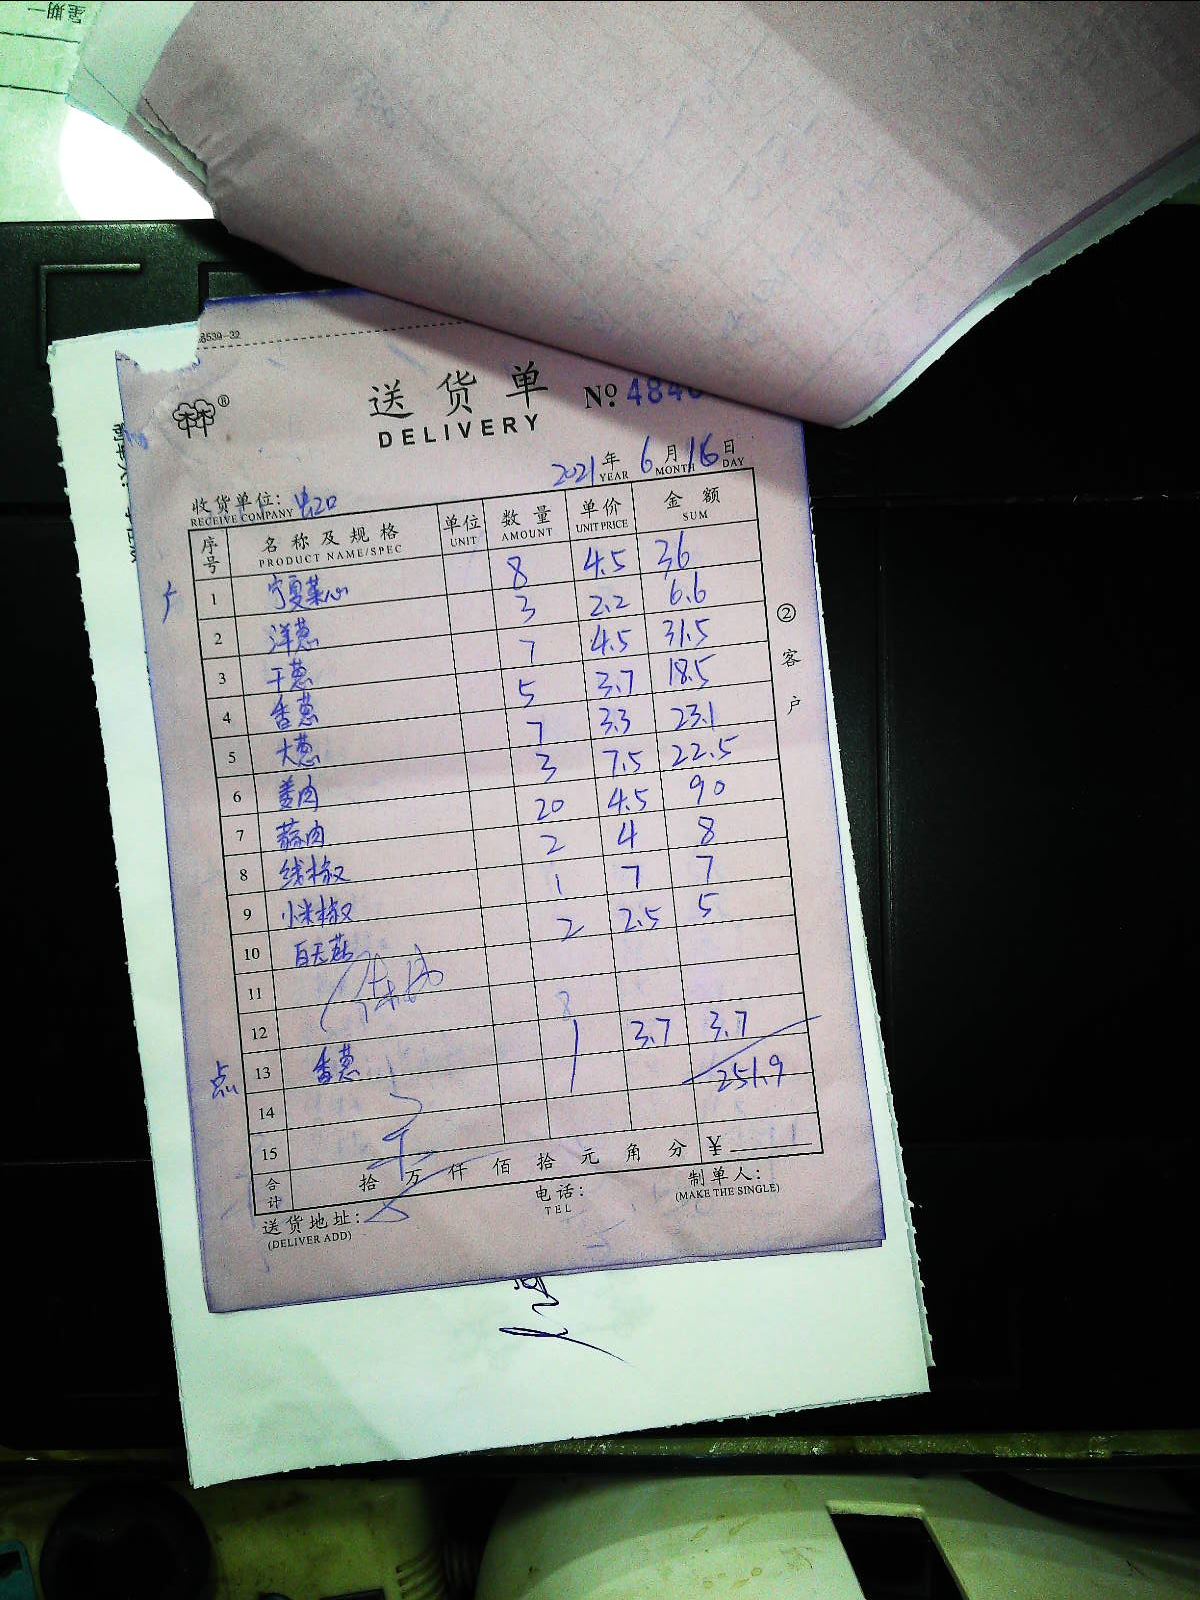 星期一
68539-32
®
送货单
DELIVERY
№ 4840
2021年 6月 16日
YEAR MONTH DAY
收货单位:
RECEIVE COMPANY
序号 名称及规格 单位 数量 单价 金额
PRODUCT NAME/SPEC UNIT AMOUNT UNIT PRICE SUM
1 宁夏菜心 8 4.5 36
2 洋葱 3 2.2 6.6
3 干葱 7 4.5 31.5
4 香葱 5 3.7 18.5
5 大葱 7 3.3 23.1
6 姜肉 3 7.5 22.5
7 蒜肉 20 4.5 90
8 线椒 2 4 8
9 小米椒 1 7 7
10 2 2.5 5
11
12
点 13 香葱 1 3.7 3.7
14 251.9
15
合计 拾 万 仟 佰 拾 元 角 分 ¥
送货地址: 电话: 制单人:
(DELIVER ADD) TEL (MAKE THE SINGLE)
②客户